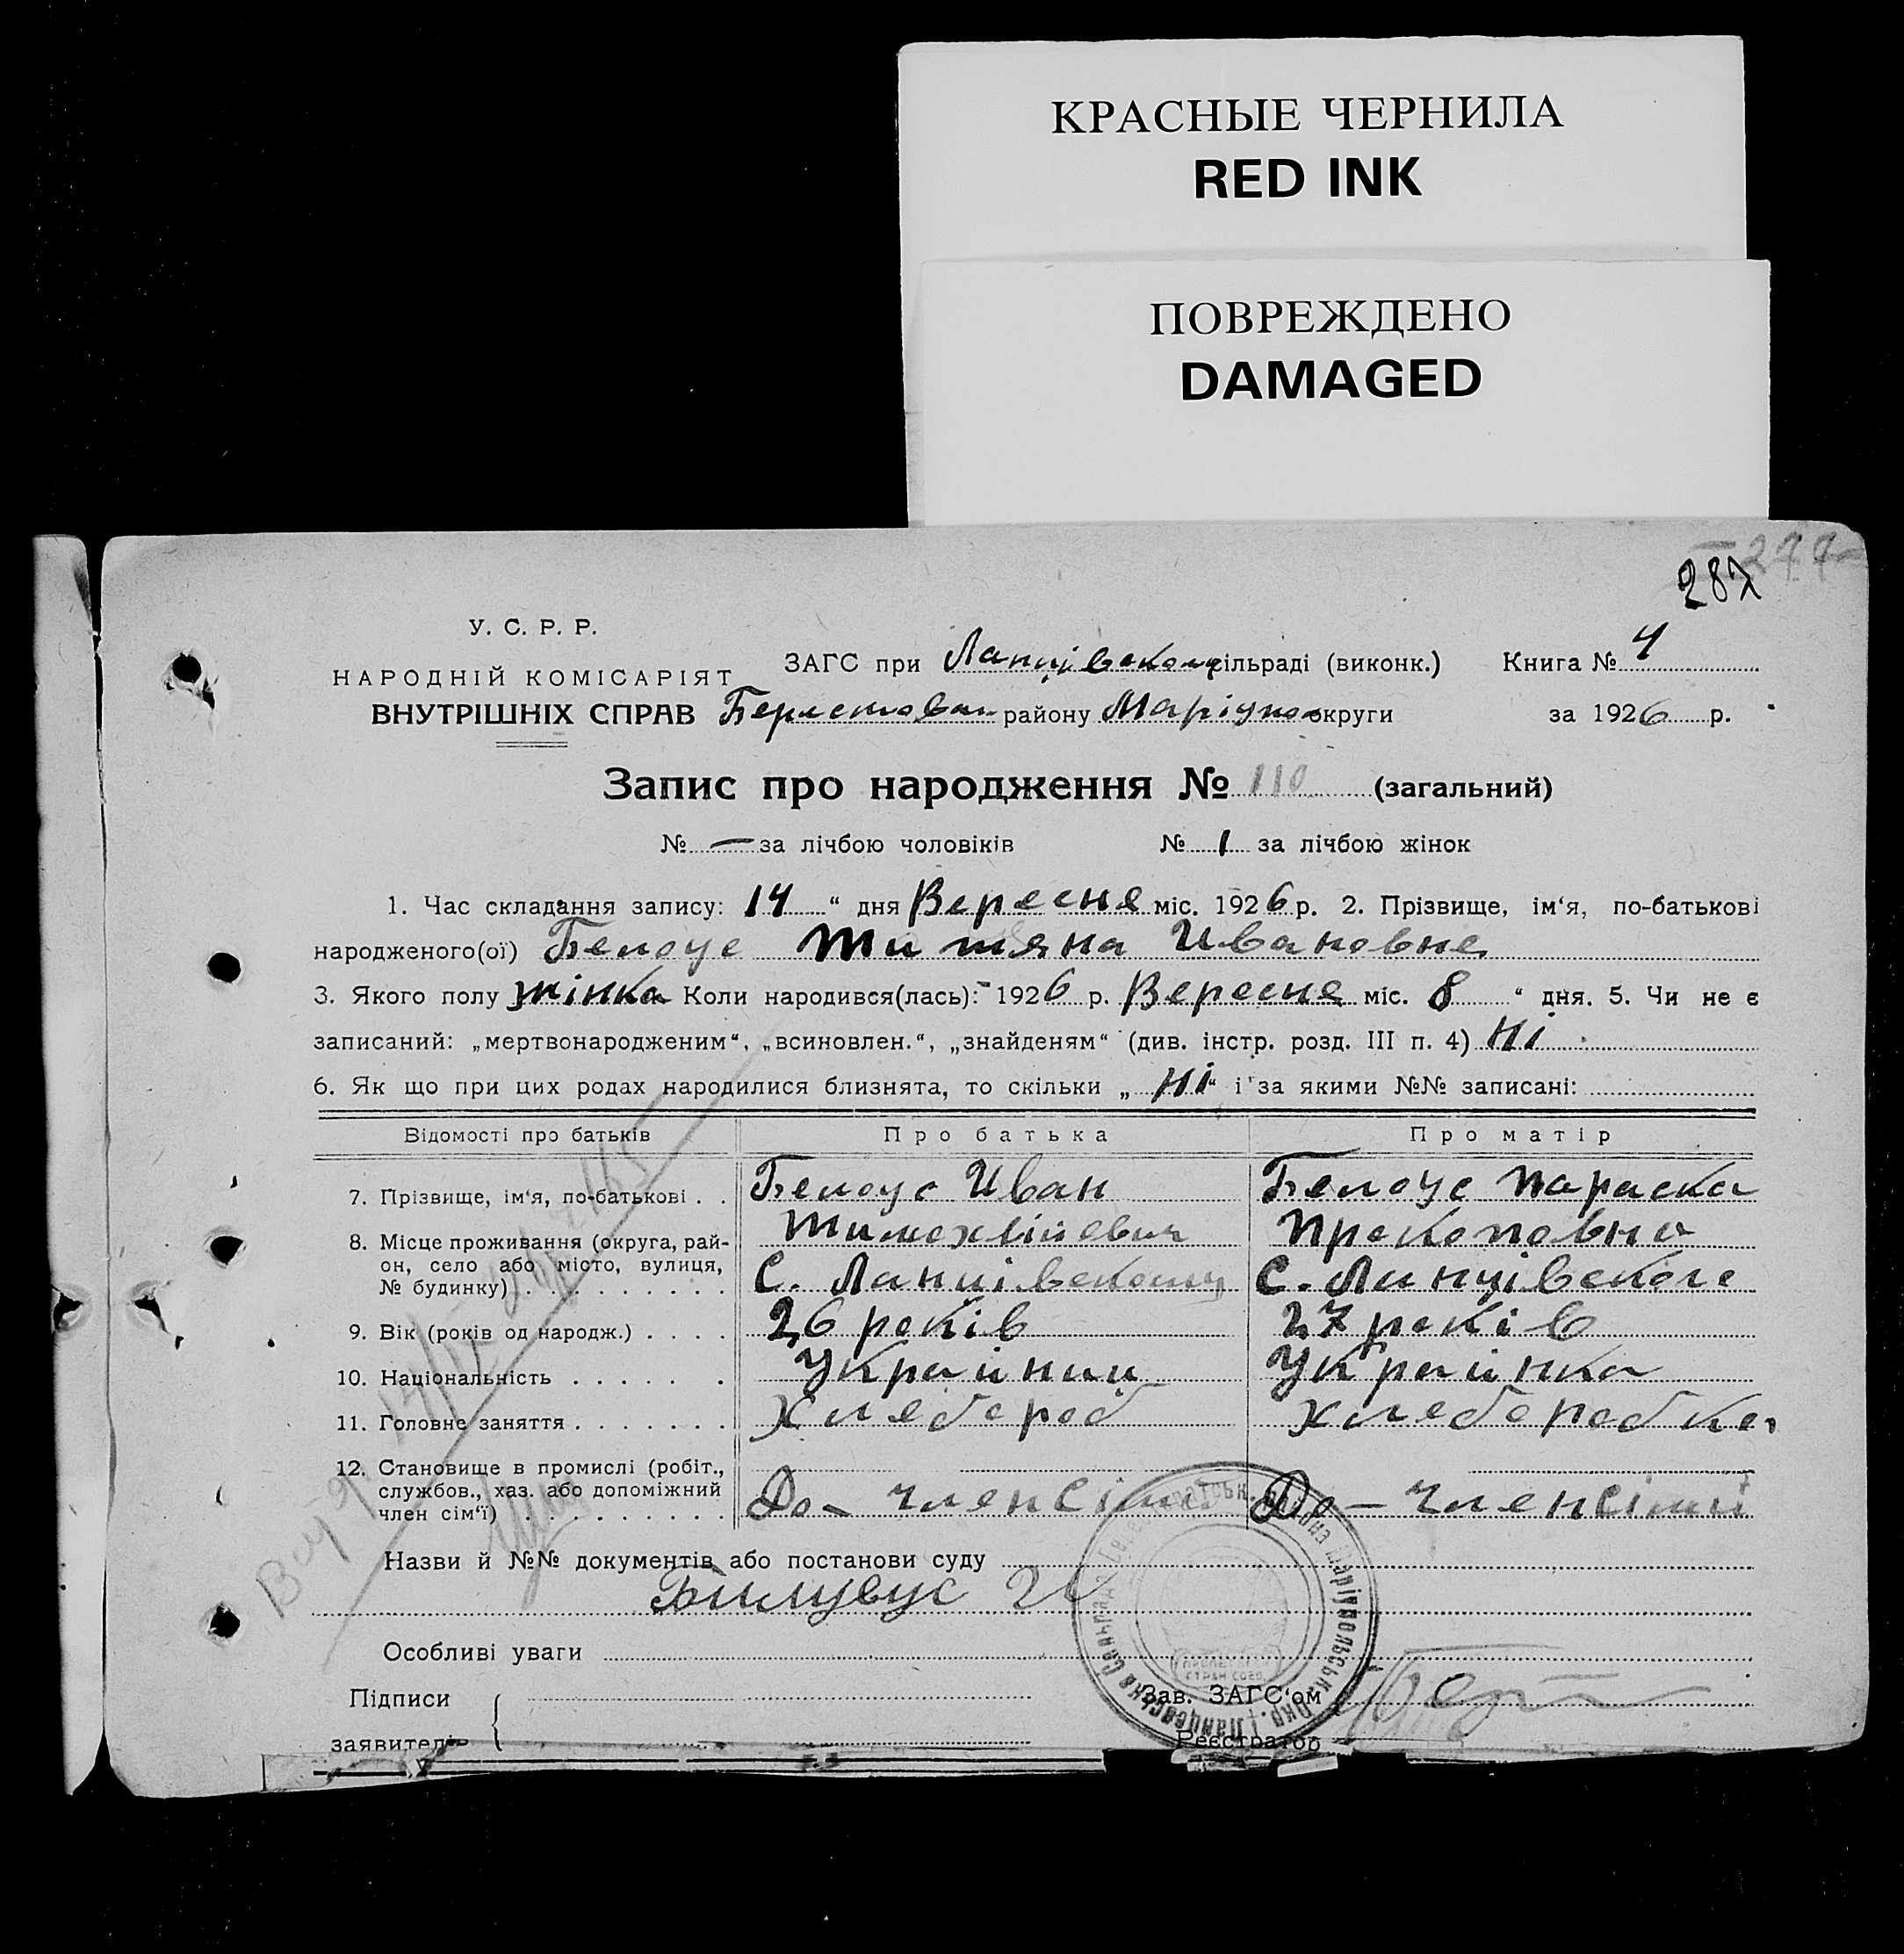 КРАСНЫЕ ЧЕРНИЛА
RED INK
ПОВРЕЖДЕНО
DAMAGED
277
287
У. С. Р. Р.
НАРОДНІЙ КОМІСАРІЯТ
ВНУТРІШНІХ СПРАВ
ЗАГС при Ланцівском сільраді (виконк.) Книга № 4
Берестован району Маріупол округи за 1926 р.
Запис про народження № 110 (загальний)
№ — за лічбою чоловіків № 1 за лічбою жінок
1. Час складання запису: 14 “ дня Вересня міс. 1926 р. 2. Прізвище, ім‘я, по-батькові
народженого(ої) Белоус Титяна Ивановна
3. Якого полу жінка Коли народився(лась): 1926 р. Вересня міс. 8 “ дня. 5. Чи не є
записаний: „мертвонародженим“, „всиновлен.“, „знайденям“ (див. інстр. розд. III п. 4) Ні
6. Як що при цих родах народилися близнята, то скільки „ Ні “ і за якими №№ записані:
Відомості про батьків Про батька Про матір
7. Прізвище, ім‘я, по-батькові . . Белоус Иван Белоус Параска
Прокоповна
8. Місце проживання (округа, рай-
он, село або місто, вулиця,
№ будинку) . . . . . . . . . С. Ланцівскому С. Ланцівского
9. Вік (років од народж.) . . . . 26 років 27 років
10. Національність . . . . . . Українии Українка
11. Головне заняття . . . . . . . Хлебороб Хлеборобка
12. Становище в промислі (робіт.,
службов., хаз. або допоміжний
член сім‘ї) . . . . . . . . . До – член сімї До – член сімї
Назви й №№ документів або постанови суду
Билувус И
Особливі уваги
Підписи
заявителів
Зав. ЗАГС‘ом
Реєстратор